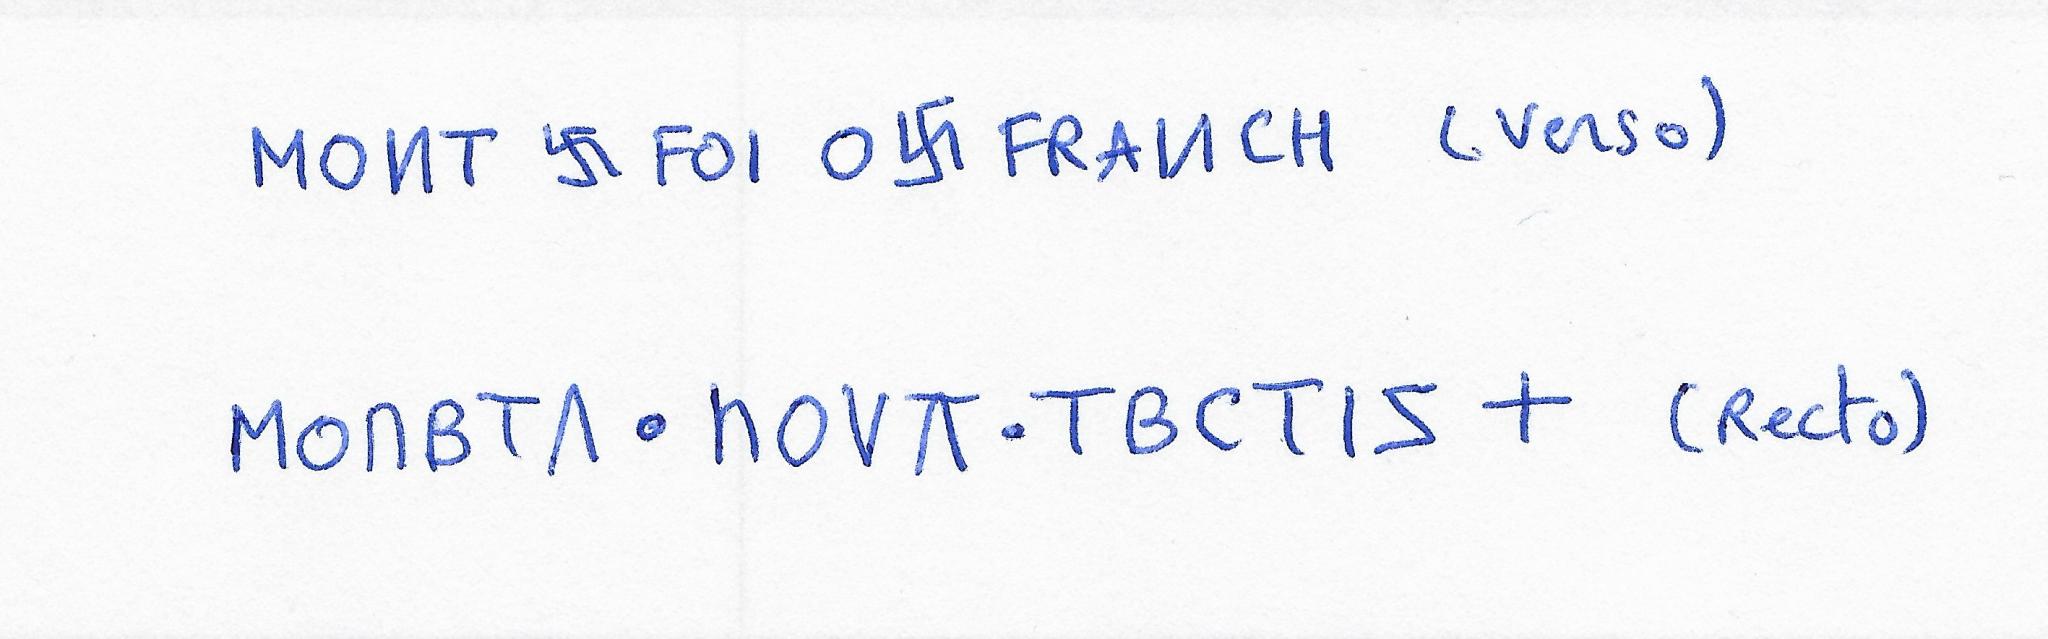 MOИT 卐 FOI O卐 FRAИCH (Verso)
MOnBTΛ • hOVπ • TBCTIS + (Recto)